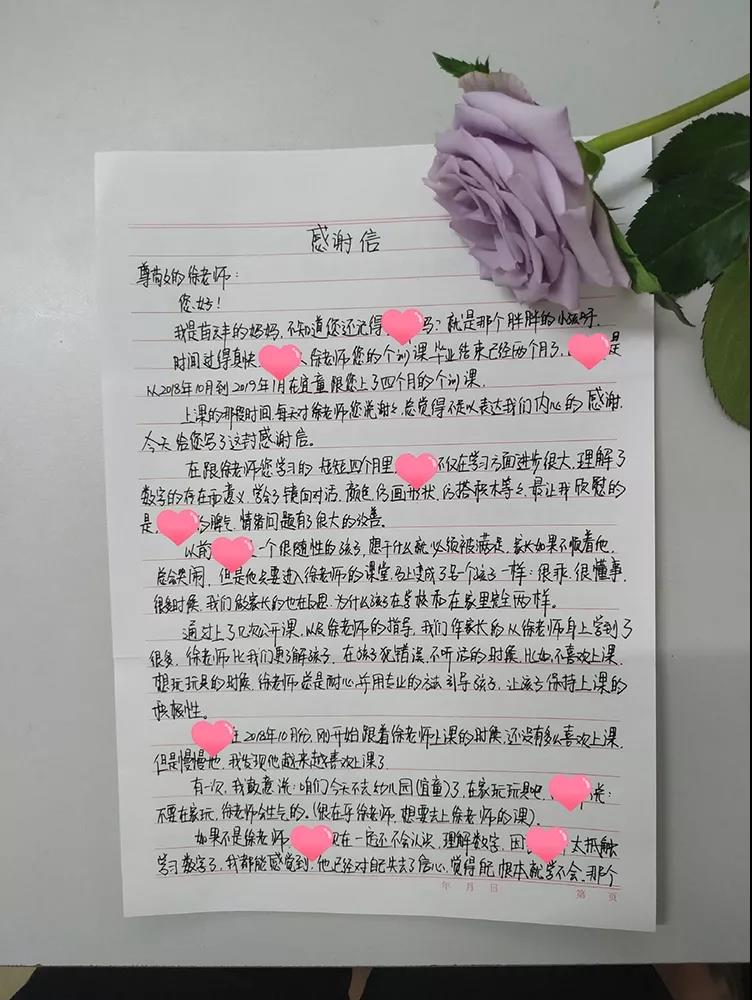 感谢信
尊敬的徐老师:
您好!
我是苗天丰的妈妈,不知道您还记得吗?就是那个胖胖的小孩呀.
时间过得真快 徐老师您的个训课毕业结束已经两个月了, 是
从2018年10月到2019年1月在宜童跟您上了四个月的个训课.
上课的那段时间,每天对徐老师您说谢谢,总觉得不足以表达我们内心的感谢.
今天给您写了这封感谢信。
在跟徐老师您学习的短短四个月里 不仅在学习方面进步很大,理解了
数字的存在而意义,学会了镜面对话,颜色,仿画形状,仿搭积木等等,最让我欣慰的
是 的脾气,情绪问题有了很大的改善。
以前 一个很随性的孩子,想干什么就必须被满足,家长如果不顺着他,
总会哭闹,但是他只要进入徐老师的课堂,马上变成了另一个孩子一样:很乖,很懂事,
很多时候,我们做家长的也在反思,为什么孩子在学校和在家里完全两样。
通过上了几次公开课,以及徐老师的指导,我们作家长的从徐老师身上学到了
很多,徐老师比我们更了解孩子,在孩子犯错误,不听话的时候,比如:不喜欢上课,
想玩玩具的时候,徐老师总是耐心,并用专业的方法,引导孩子,让孩子保持上课的
积极性。
在2018年10月份,刚开始跟着徐老师上课的时候,还没有多么喜欢上课,
但是慢慢地,我发现他越来越喜欢上课了.
有一次,我故意说:咱们今天不去幼儿园(宜童)了,在家玩玩具吧, 说:
不要在家玩,徐老师会生气的.(很在乎徐老师,想要去上徐老师的课).
如果不是徐老师 现在一定还不会认识,理解数字,因 太抵触
学习数字了,我都能感觉到,他已经对自己失去了信心,觉得自己根本就学不会,那个
年 月 日
第 页